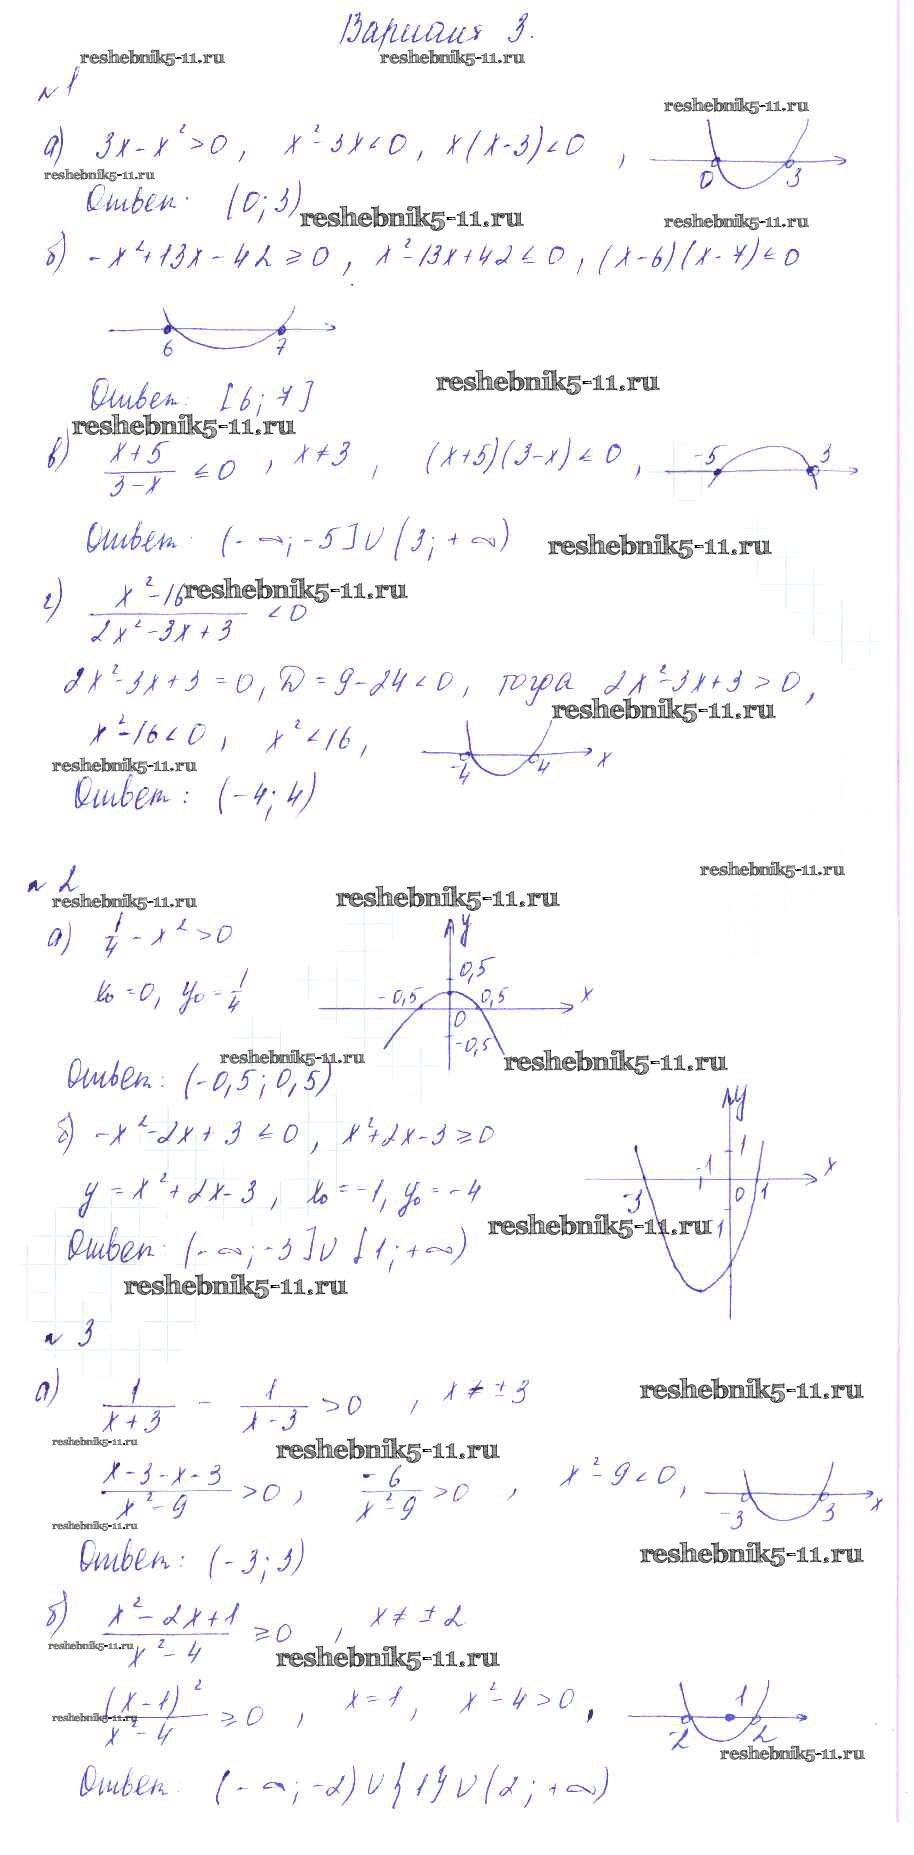 Вариант 3.
reshebnik5-11.ru reshebnik5-11.ru
№ 1
reshebnik5-11.ru
а) 3x - x² > 0, x² - 3x < 0, x(x-3) < 0, 0 3
reshebnik5-11.ru
Ответ: (0; 3)
reshebnik5-11.ru reshebnik5-11.ru
б) -x² + 13x - 42 ≥ 0, x² - 13x + 42 ≤ 0, (x-6)(x-7) ≤ 0
6 7
reshebnik5-11.ru
Ответ: [6; 7]
reshebnik5-11.ru
в) (x+5)/(3-x) ≤ 0, x ≠ 3, (x+5)(3-x) ≤ 0, -5 3
Ответ: (-∞; -5] ∪ (3; +∞)
reshebnik5-11.ru
г) (x² - 16)/(2x² - 3x + 3) < 0
reshebnik5-11.ru
2x² - 3x + 3 = 0, D = 9 - 24 < 0, тогда 2x² - 3x + 3 > 0,
reshebnik5-11.ru
x² - 16 < 0, x² < 16, -4 4 x
reshebnik5-11.ru
Ответ: (-4; 4)
reshebnik5-11.ru
№ 2
reshebnik5-11.ru reshebnik5-11.ru
а) 1/4 - x² > 0
x₀ = 0, y₀ = 1/4
y 0,5 -0,5 0,5 x 0 -0,5
reshebnik5-11.ru reshebnik5-11.ru
Ответ: (-0,5; 0,5)
б) -x² - 2x + 3 ≤ 0, x² + 2x - 3 ≥ 0
y = x² + 2x - 3, x₀ = -1, y₀ = -4
y 1 -1 x -3 0 1 1
reshebnik5-11.ru
Ответ: (-∞; -3] ∪ [1; +∞)
reshebnik5-11.ru
№ 3
а) 1/(x+3) - 1/(x-3) > 0, x ≠ ±3
reshebnik5-11.ru
reshebnik5-11.ru reshebnik5-11.ru
(x-3-x-3)/(x²-9) > 0, -6/(x²-9) > 0, x² - 9 < 0, -3 3 x
reshebnik5-11.ru
Ответ: (-3; 3)
reshebnik5-11.ru
б) (x² - 2x + 1)/(x² - 4) ≥ 0, x ≠ ±2
reshebnik5-11.ru reshebnik5-11.ru
(x-1)²/(x²-4) ≥ 0, x = 1, x² - 4 > 0, -2 1 2
reshebnik5-11.ru
reshebnik5-11.ru
Ответ: (-∞; -2) ∪ {1} ∪ (2; +∞)